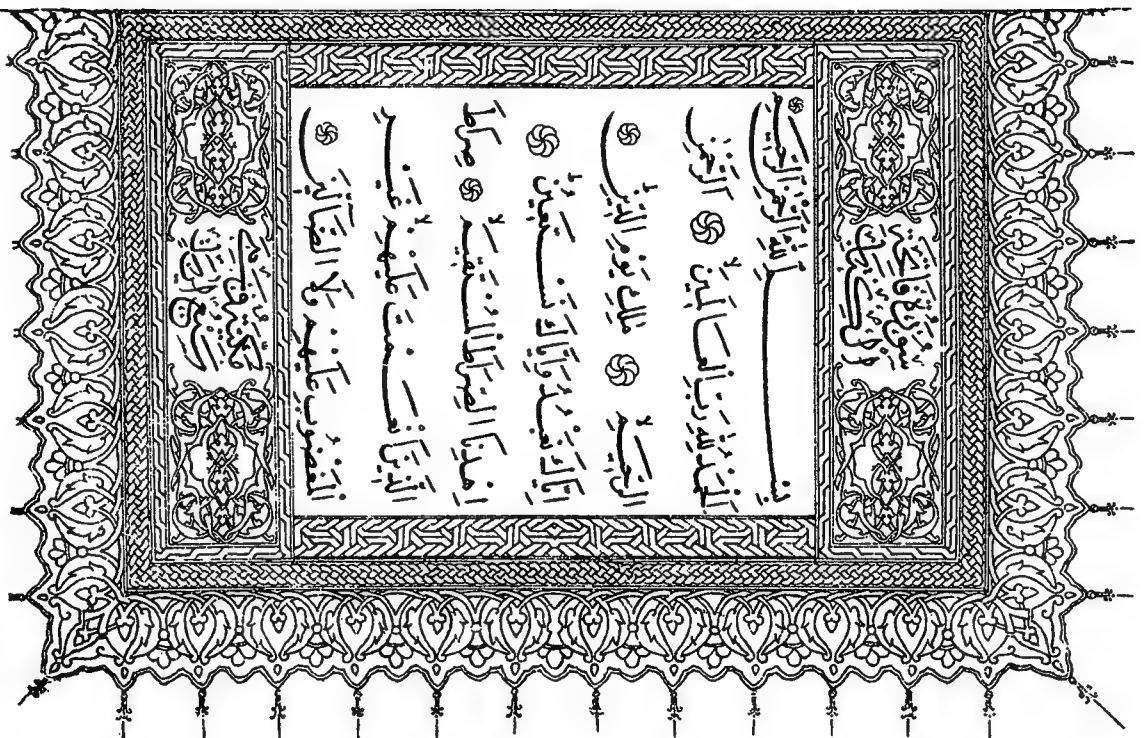 سورة
بِسْمِ اللَّهِ الرَّحْمَٰنِ الرَّحِيمِ
الْحَمْدُ لِلَّهِ رَبِّ الْعَالَمِينَ الرَّحْمَٰنِ
الرَّحِيمِ مَالِكِ يَوْمِ الدِّينِ
إِيَّاكَ نَعْبُدُ وَإِيَّاكَ نَسْتَعِينُ
اهْدِنَا الصِّرَاطَ الْمُسْتَقِيمَ صِرَاطَ
الَّذِينَ أَنْعَمْتَ عَلَيْهِمْ غَيْرِ
الْمَغْضُوبِ عَلَيْهِمْ وَلَا الضَّالِّينَ